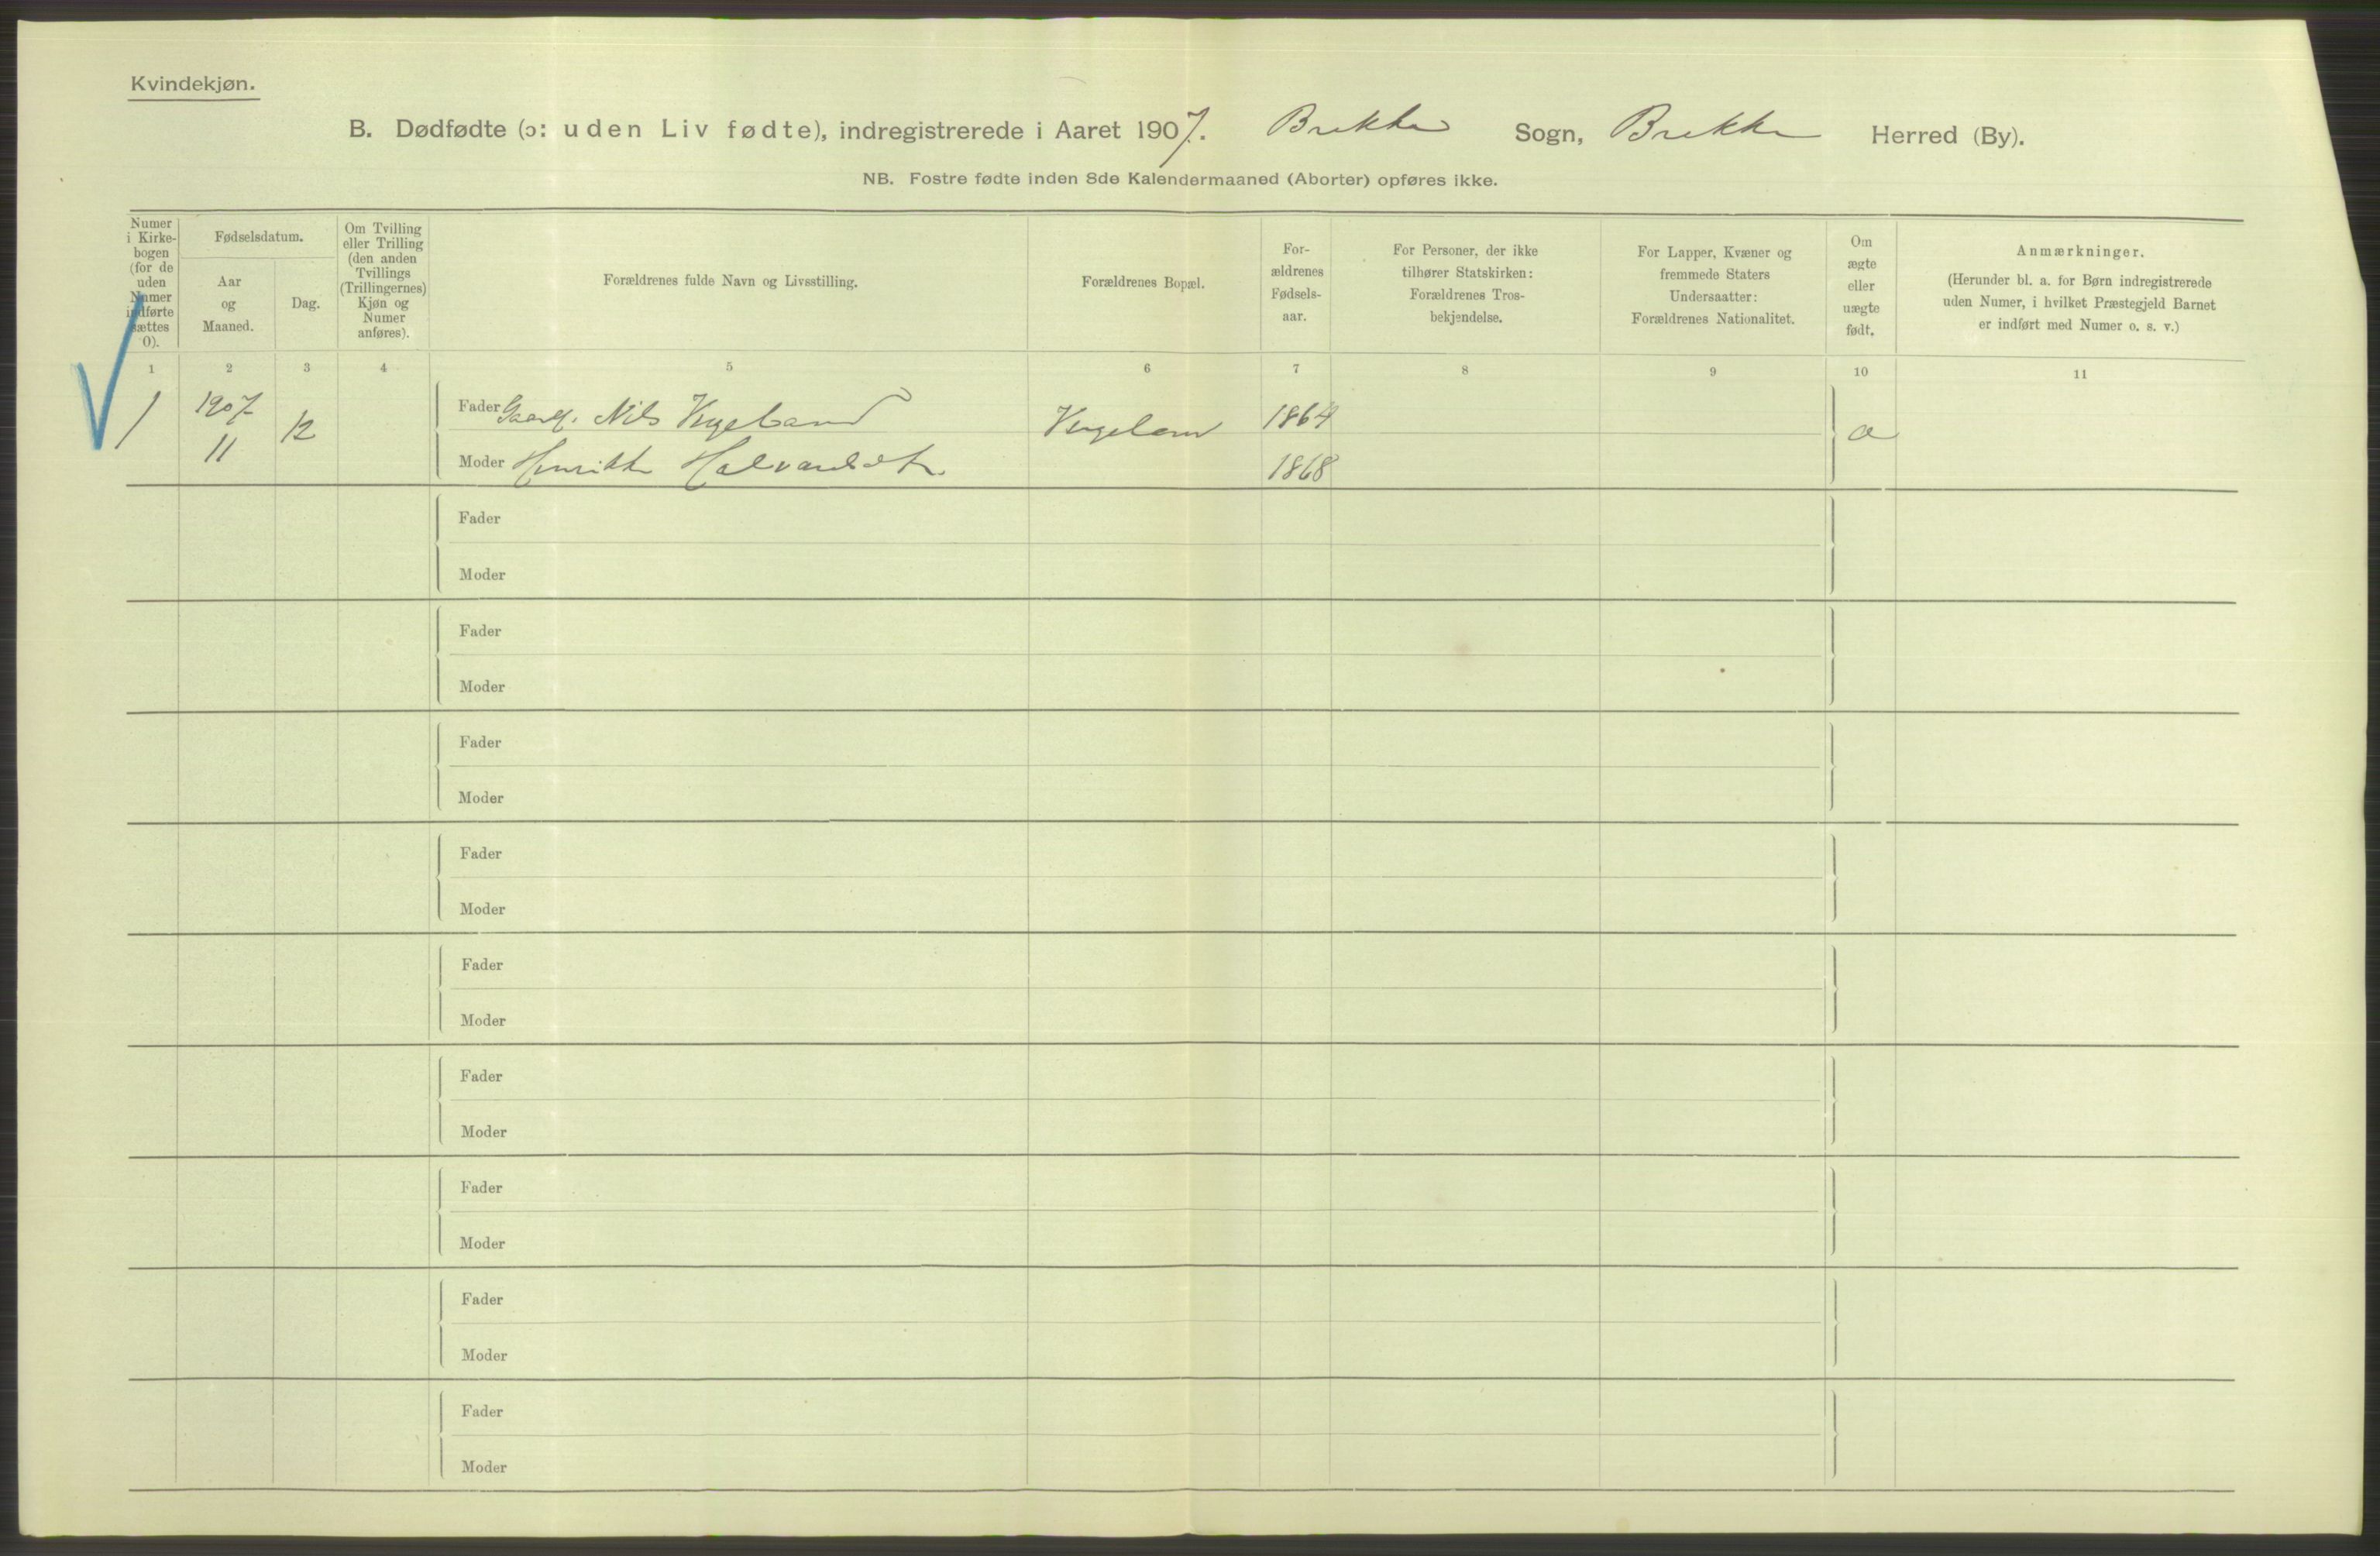 Kvindekjøn.
B. Dødfødte (ɔ: uden Liv fødte), indregistrerede i Aaret 1907. Brekke Sogn, Brekke Herred (By).
NB. Fostre fødte inden 8de Kalendermaaned (Aborter) opføres ikke.
Numer i Kirkebogen (for de uden Numer indførte sættes 0).
Fødselsdatum.
Aar og Maaned.
Dag.
Om Tvilling eller Trilling (den anden Tvillings (Trillingernes) Kjøn og Numer anføres).
Forældrenes fulde Navn og Livsstilling.
Forældrenes Bopæl.
For-
ældrenes
Fødsels-
aar.
For Personer, der ikke
tilhører Statskirken:
Forældrenes Tros-
bekjendelse.
For Lapper, Kvæner og
fremmede Staters
Undersaatter:
Forældrenes Nationalitet.
Om
ægte
eller
uægte
født.
Anmærkninger.
(Herunder bl. a. for Børn indregistrerede
uden Numer, i hvilket Præstegjeld Barnet
er indført med Numer o. s. v.)
1 2 3 4 5 6 7 8 9 10 11
1 1907 11 12
Fader Nils 1864
Moder Henrikke 1868
Fader
Moder
Fader
Moder
Fader
Moder
Fader
Moder
Fader
Moder
Fader
Moder
Fader
Moder
Fader
Moder
Fader
Moder